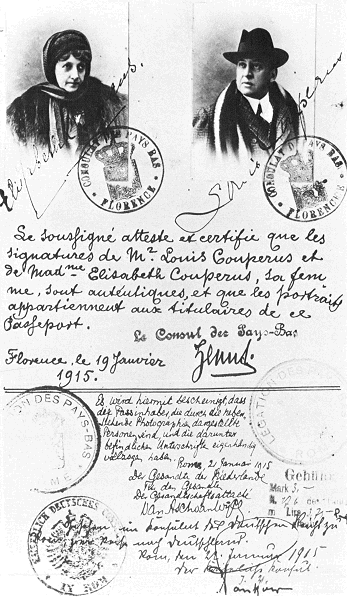 Elisabeth Couperus.
Louis Couperus
CONSULAT DES PAYS BAS
FLORENCE
CONSULAT DES PAYS BAS
FLORENCE
Le soussigné atteste et certifie que les
signatures de Mr. Louis Couperus et
de Madme Elisabeth Couperus, sa fem
me, sont autentiques, et que les portraits
appartiennent aux titulaires de ce
Passeport.
Le Consul des Pays-Bas
Florence, le 19 Janvier
1915.
Es wird hiermit bescheinigt, dass
der Passinhaber die durch die neben
stehende Photographie dargestellte
Person sind, und die darunter
befindliche Unterschrifte eigenhändig
vollzogen haben.
Rome, 21 Januari 1915
Der Gesandte der Niederlande
Für den Gesandte
Der Gesandtschaftsattaché
DES PAYS-BAS
LEGATION DES PAYS
Gebühr
Mark 3
KAISERLICH DEUTSCHES
ROM
Konsulat des Deutschen Reichs zu
nach Deutschland.
Rom, den 22. Januar 1915
Der Konsul